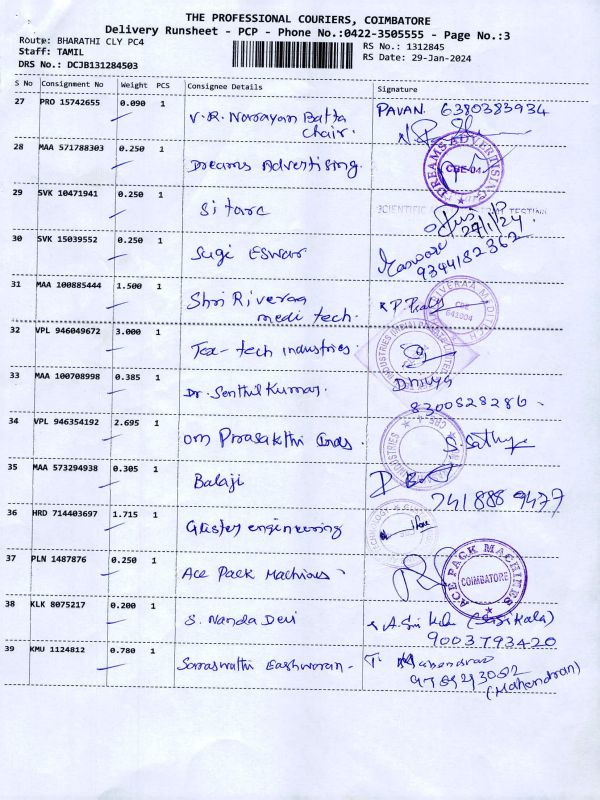 THE PROFESSIONAL COURIERS, COIMBATORE
Delivery Runsheet - PCP - Phone No.:0422-3505555 - Page No.:3
Route: BHARATHI CLY PC4
RS No.: 1312845
Staff: TAMIL
RS Date: 29-Jan-2024
DRS No.: DCJB131284503
S No Consignment No Weight PCS Consignee Details Signature
27 PRO 15742655 0.090 1 V.R. Narayan Batta PAVAN. 6380383934
Chair.
28 MAA 571788303 0.250 1 Dreams Advertising. DREAMS ADVERTISING CBE-04
29 SVK 10471941 0.250 1 Si tarc
27/1/24
30 SVK 15039552 0.250 1 Sugi Eswar
9344182362
31 MAA 100885444 1.500 1 Shri Riveraa
medi tech. CBE 641004
32 VPL 946049672 3.000 1 Tex-tech industries.
33 MAA 100708998 0.385 1 Dr. Senthil Kumar. Dhivya
8300528286
34 VPL 946354192 2.695 1 Om Prasakthi Inds. S. Sathya
35 MAA 573294938 0.305 1 Balaji
741888 9477
36 HRD 714403697 1.715 1 engineering
37 PLN 1487876 0.250 1 Ace Pack Machines ACE PACK MACHINES COIMBATORE
38 KLK 8075217 0.200 1 S. Nanda Devi (Sasikala)
9003793420
39 KMU 1124812 0.780 1 Saraswathi Eashworan - T. Mahendran
(Mahendran)